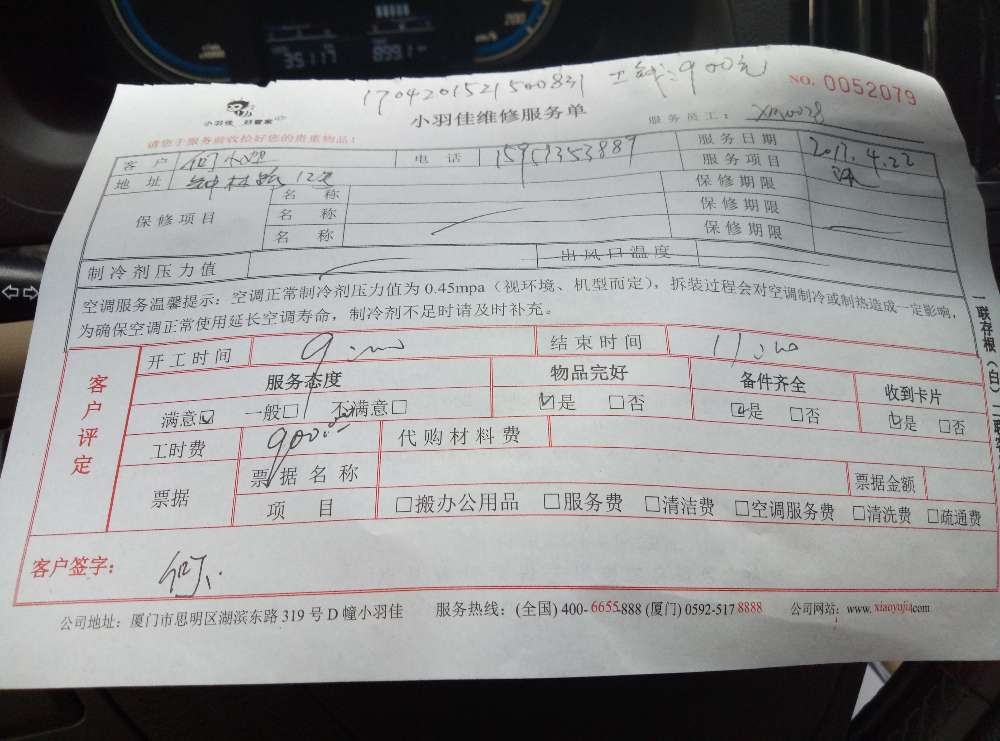 35117 899.1
1704201521500831 工钱:900元
NO. 0052079
小羽佳 好管家
小羽佳维修服务单
服务员工: XM0078
请您于服务前收捡好您的贵重物品!
客户 何小姐 电话 服务日期 2017.4.22
地址 12号 服务项目
保修项目 名称 保修期限
名称 保修期限
名称 保修期限
制冷剂压力值 出风口温度
空调服务温馨提示: 空调正常制冷剂压力值为 0.45mpa (视环境、机型而定), 拆装过程会对空调制冷或制热造成一定影响,
为确保空调正常使用延长空调寿命, 制冷剂不足时请及时补充。
一联存根(白)
客户评定
开工时间 9:00 结束时间 11:00
服务态度 物品完好 备件齐全 收到卡片
满意☑ 一般□ 不满意□ ☑是 □否 ☑是 □否 ☑是 □否
工时费 900.00 代购材料费
票据 票据名称 票据金额
项目 □搬办公用品 □服务费 □清洁费 □空调服务费 □清洗费 □疏通费
客户签字: 何
公司地址: 厦门市思明区湖滨东路 319 号 D 幢小羽佳 服务热线: (全国) 400-6655-888 (厦门) 0592-517 8888 公司网站: www.xiaoyujia.com